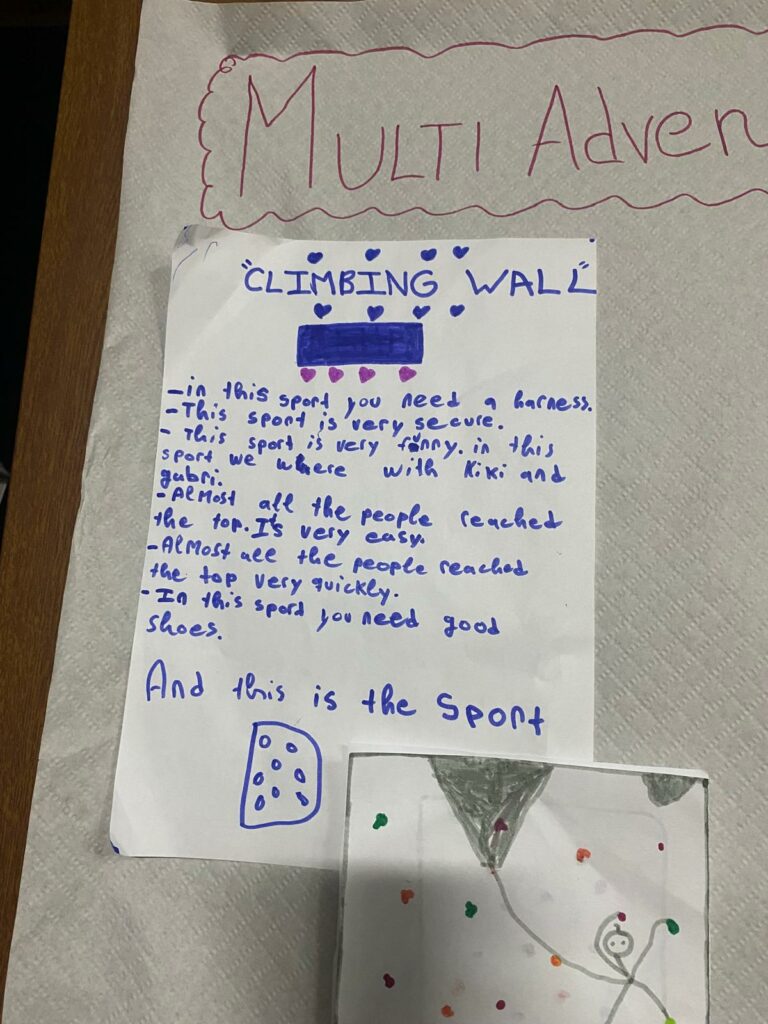 MULTI Adven
"CLIMBING WALL"
- in this sport you need a harness.
- This sport is very secure.
- This sport is very funny. in this
sport we where with Kiki and
gabri.
- Almost all the people reached
the top. It's very easy.
- Almost all the people reached
the top very quickly.
- In this sport you need good
shoes.
And this is the sport